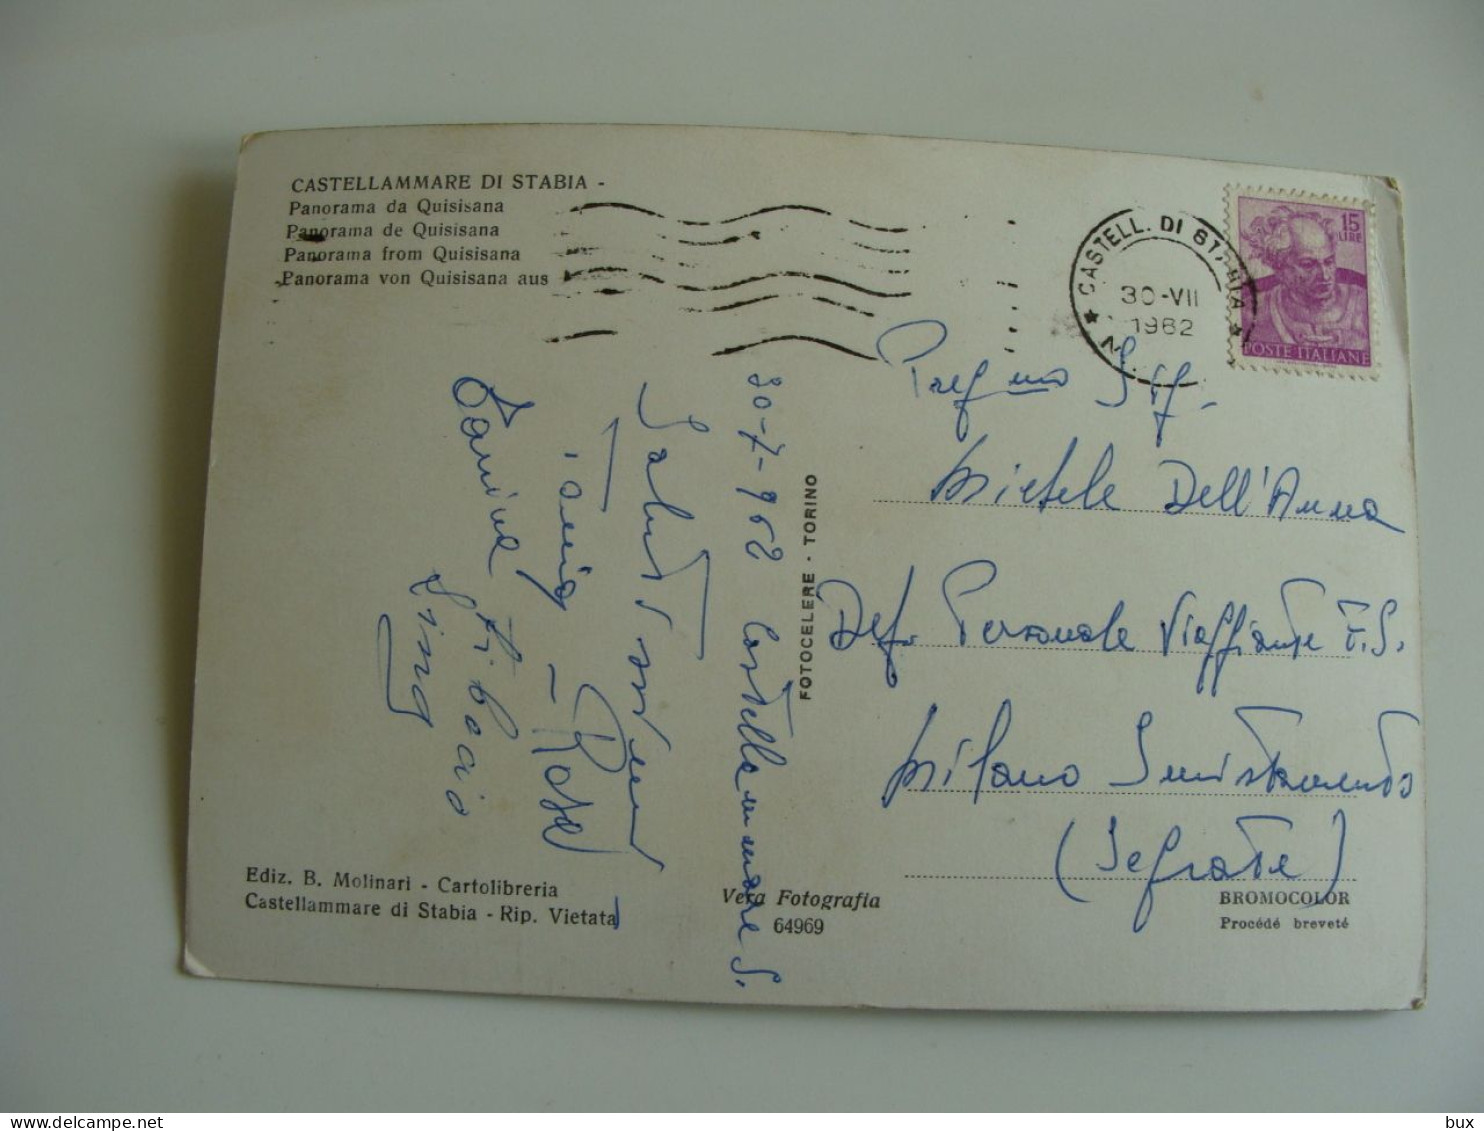 CASTELLAMMARE DI STABIA -
Panorama da Quisisana
Panorama de Quisisana
Panorama from Quisisana
Panorama von Quisisana aus
CASTELL. DI STABIA
30-VII
1962
15
LIRE
POSTE ITALIANE
30-7-962 Castellammare S.
Salutissimi
Tania - Rosa
Lina
FOTOCELERE - TORINO
Michele Dell'Anna
Def. Personale Viaggiante F.S.
Milano Smistamento
(Segrate)
Ediz. B. Molinari - Cartolibreria
Castellammare di Stabia - Rip. Vietata
Vera Fotografia
64969
BROMOCOLOR
Procédé breveté
bux